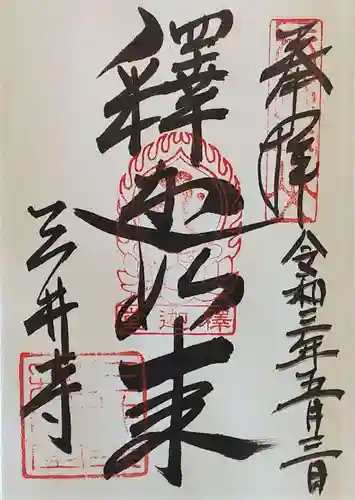 奉拜
令和三年五月三日
釋迦如来
三井寺
釋迦